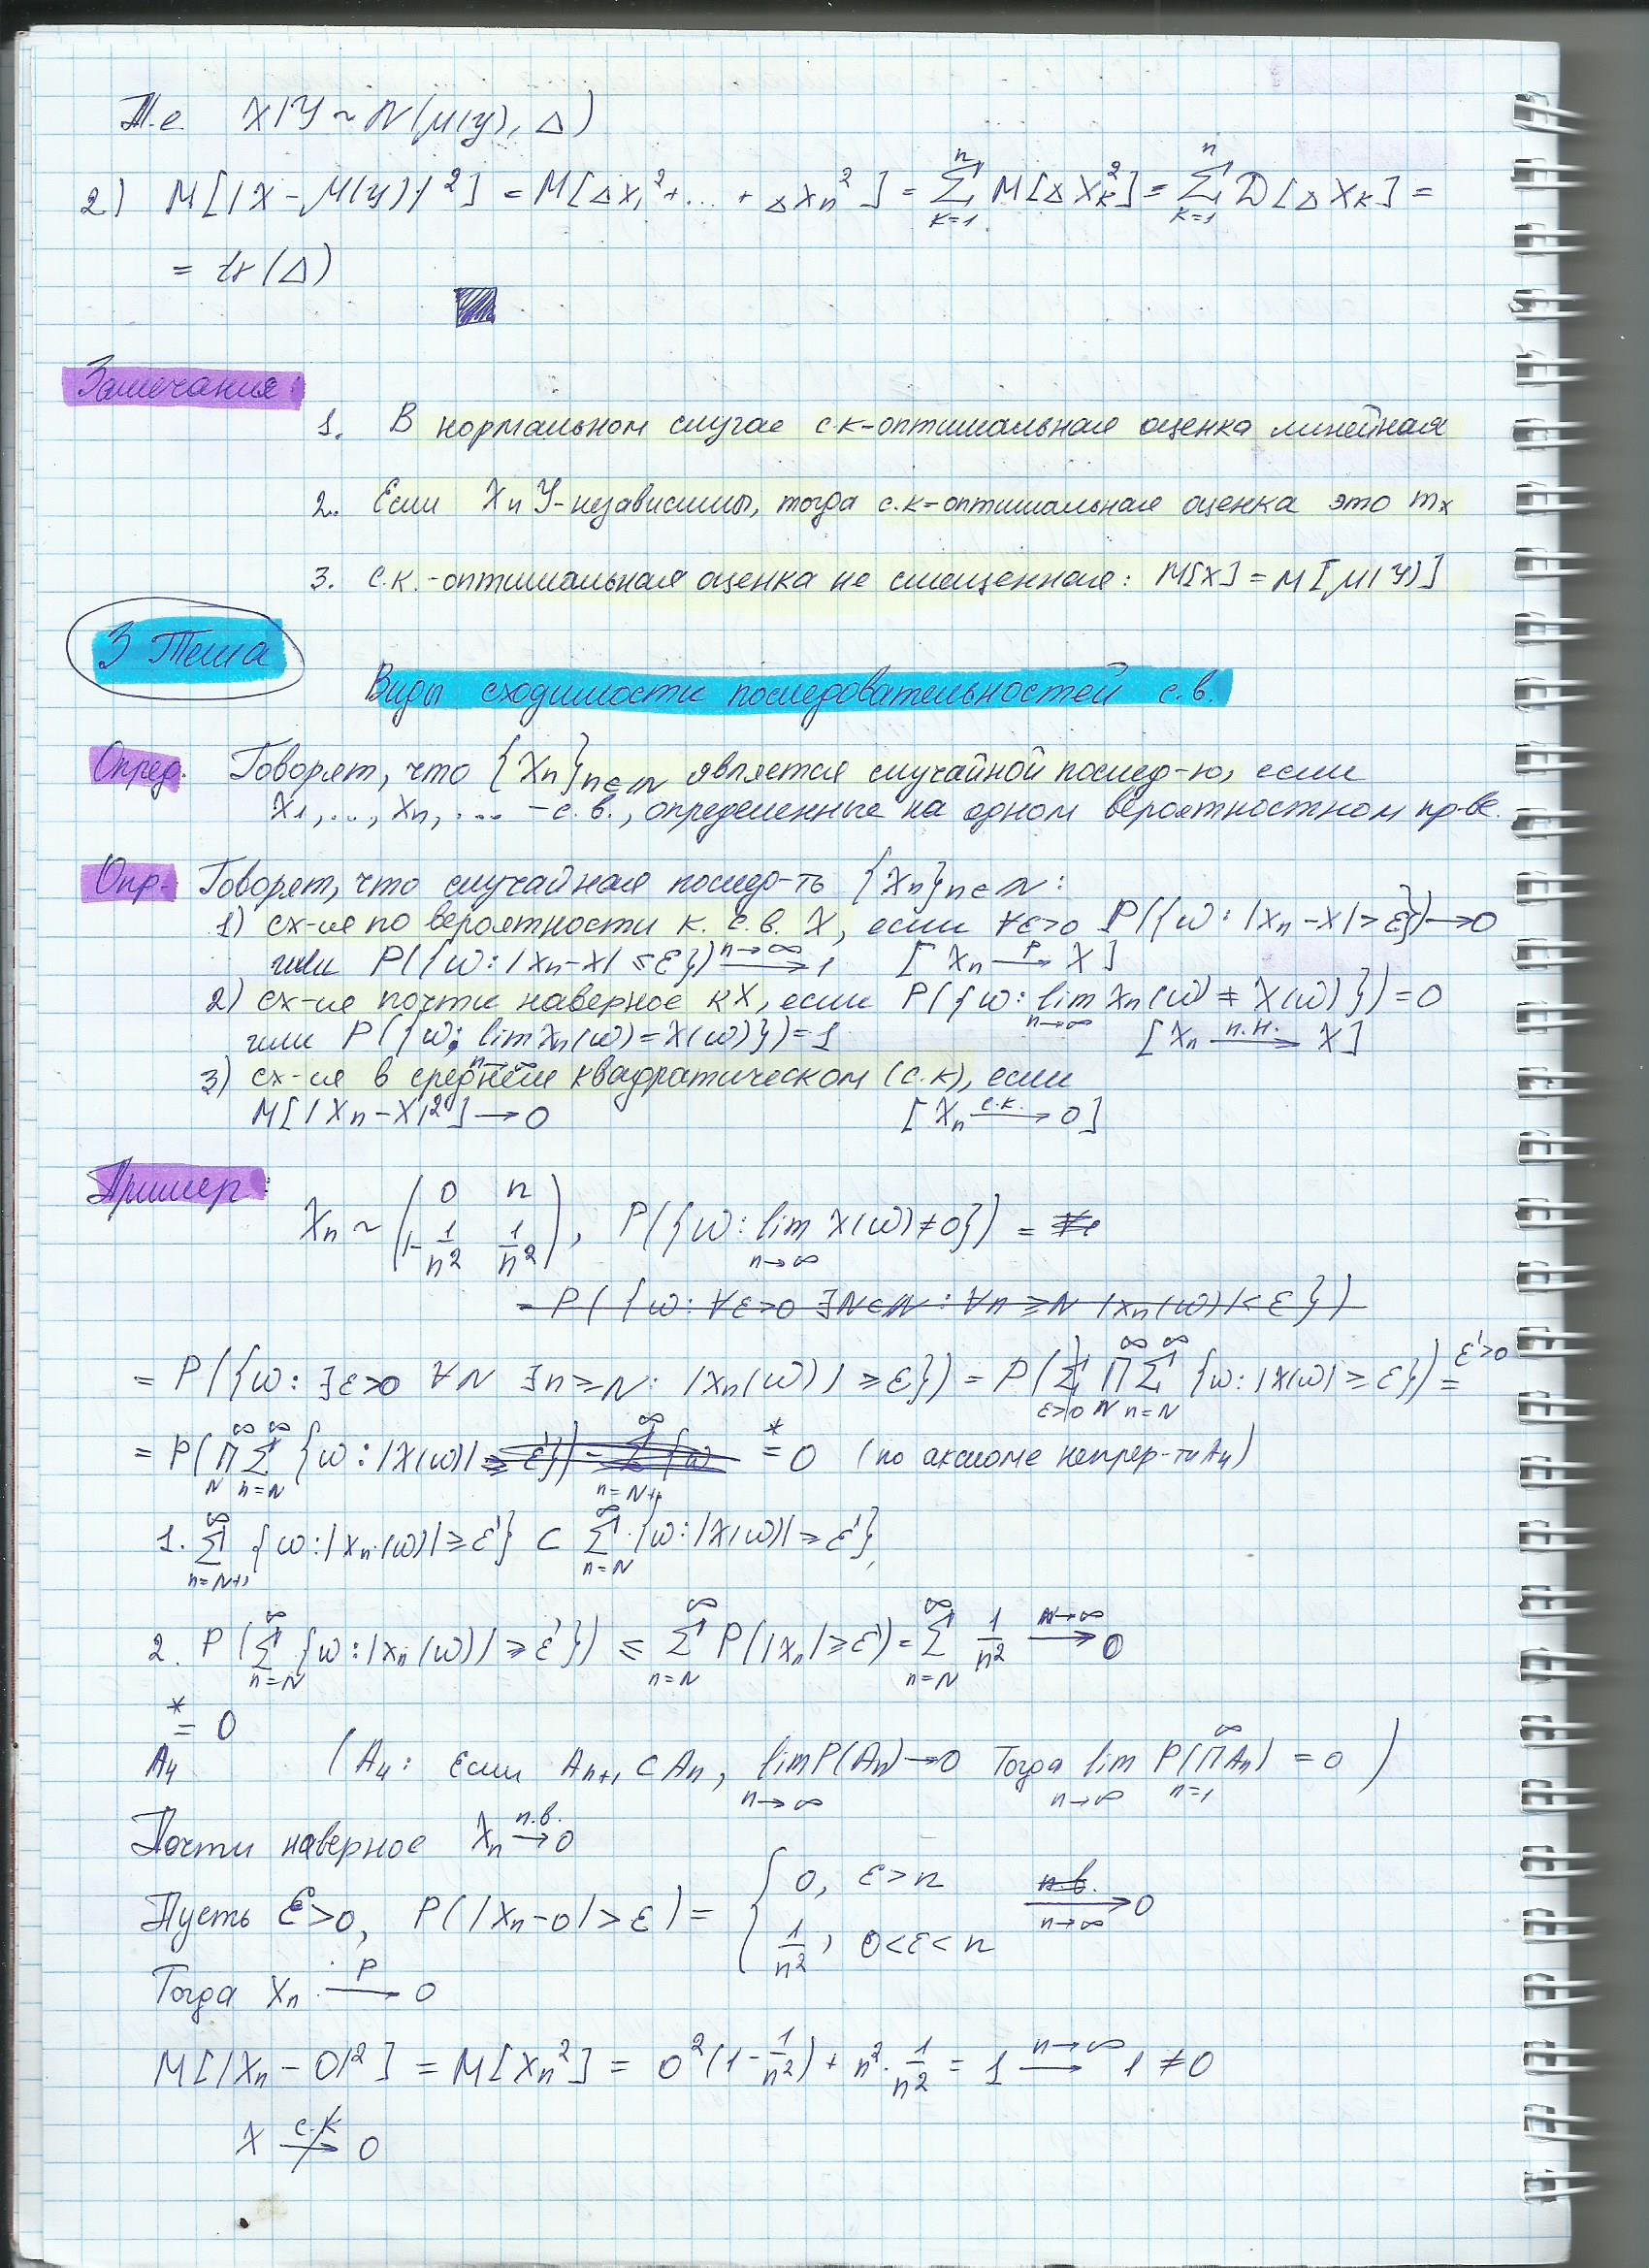 Т.е. X|Y ~ N(μ(y), Δ)
2) M[|X - μ(y)|²] = M[ΔX₁² + ... + ΔXₙ²] = Σₖ₌₁ⁿ M[ΔXₖ²] = Σₖ₌₁ⁿ D[ΔXₖ] =
= tr(Δ)
Замечания:
1. В нормальном случае с.к-оптимальная оценка линейная
2. Если X и Y-независимы, тогда с.к-оптимальная оценка это mₓ
3. с.к.-оптимальная оценка не смещенная: M[X] = M[μ(Y)]
3 Тема
Виды сходимости последовательностей с.в.
Опред. Говорят, что {Xₙ}ₙ∈N является случайной послед-ю, если
X₁, ..., Xₙ, ... - с.в., определенные на одном вероятностном пр-ве.
Опр. Говорят, что случайная послед-ть {Xₙ}ₙ∈N:
1) сх-ся по вероятности к. с.в. X, если ∀ε>0 P({ω: |Xₙ-X|>ε})→0
или P({ω: |Xₙ-X| ≤ε}) →(n→∞) 1 [Xₙ →(P) X]
2) сх-ся почти наверное к X, если P({ω: lim n→∞ Xₙ(ω) ≠ X(ω)}) = 0
или P({ω: lim n→∞ Xₙ(ω) = X(ω)}) = 1 [Xₙ →(п.н.) X]
3) сх-ся в среднем квадратическом (с.к), если
M[|Xₙ-X|²] → 0 [Xₙ →(с.к.) 0]
Пример:
Xₙ ~ (0 n; 1-1/n² 1/n²), P({ω: lim n→∞ X(ω) ≠ 0}) =
= P({ω: ∀ε>0 ∃N∈N: ∀n ≥ N |Xₙ(ω)| < ε})
= P({ω: ∃ε>0 ∀N ∃n ≥ N: |Xₙ(ω)| ≥ ε}) = P(Σ ε>0 Π N ∞ Σ n=N ∞ {ω: |X(ω)| ≥ ε}) = ε'>0
= P(Π N ∞ Σ n=N ∞ {ω: |X(ω)| ≥ ε'}) =* 0 (по аксиоме непрер-ти A₄)
1. Σ n=N+1 ∞ {ω: |Xₙ(ω)| ≥ ε'} ⊂ Σ n=N ∞ {ω: |X(ω)| ≥ ε'},
2. P(Σ n=N ∞ {ω: |Xₙ(ω)| ≥ ε'}) ≤ Σ n=N ∞ P(|Xₙ| ≥ ε') = Σ n=N ∞ 1/n² →(N→∞) 0
=* 0
A₄ (A₄: Если Aₙ₊₁ ⊂ Aₙ, lim n→∞ P(Aₙ) → 0 Тогда lim n→∞ P(Π n=1 ∞ Aₙ) = 0)
Почти наверное Xₙ →(п.в.) 0
Пусть ε>0, P(|Xₙ-0| > ε) = { 0, ε>n; 1/n², 0<ε<n →(n→∞) 0
Тогда Xₙ →(P) 0
M[|Xₙ - 0|²] = M[Xₙ²] = 0²(1-1/n²) + n²·1/n² = 1 →(n→∞) 1 ≠ 0
X ↛(с.к) 0